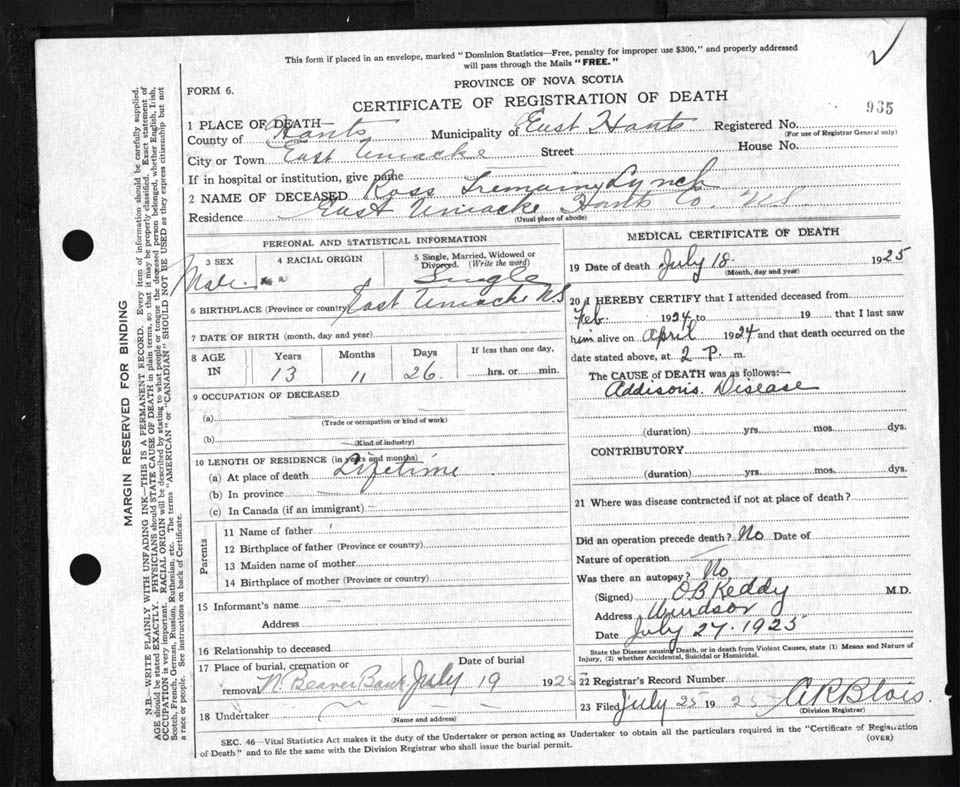 This form if placed in an envelope, marked "Dominion Statistics—Free, penalty for improper use $300," and properly addressed
will pass through the Mails "FREE."
PROVINCE OF NOVA SCOTIA
FORM 6.
CERTIFICATE OF REGISTRATION OF DEATH
935
1 PLACE OF DEATH
County of Hants Municipality of East Hants Registered No.
(For use of Registrar General only)
City or Town East Uniacke Street House No.
If in hospital or institution, give name
2 NAME OF DECEASED Ross Tremaine Lynch
Residence East Uniacke Hants Co. N.S.
(Usual place of abode)
PERSONAL AND STATISTICAL INFORMATION
3 SEX 4 RACIAL ORIGIN 5 Single, Married, Widowed or Divorced. (Write the word)
Male Single
6 BIRTHPLACE (Province or country) East Uniacke NS
7 DATE OF BIRTH (month, day and year)
8 AGE IN Years Months Days If less than one day,
13 11 26 hrs. or min.
9 OCCUPATION OF DECEASED
(a)
(Trade or occupation or kind of work)
(b)
(Kind of industry)
10 LENGTH OF RESIDENCE (in years and months)
(a) At place of death Lifetime
(b) In province
(c) In Canada (if an immigrant)
Parents
11 Name of father
12 Birthplace of father (Province or country)
13 Maiden name of mother
14 Birthplace of mother (Province or country)
15 Informant's name
Address
16 Relationship to deceased
17 Place of burial, cremation or Date of burial
removal N. Beaver Bank July 19 1925
18 Undertaker
(Name and address)
MEDICAL CERTIFICATE OF DEATH
19 Date of death July 18 1925
(Month, day and year)
20 I HEREBY CERTIFY that I attended deceased from
Feb. 1924 to 19 that I last saw
him alive on April 1924 and that death occurred on the
date stated above, at 2 P. m.
The CAUSE of DEATH was as follows:
Addisons Disease
(duration) yrs. mos. dys.
CONTRIBUTORY
(duration) yrs. mos. dys.
21 Where was disease contracted if not at place of death?
Did an operation precede death? No Date of
Nature of operation
Was there an autopsy? No
(Signed) O B Keddy M.D.
Address Windsor
Date July 27. 1925
State the Disease causing Death, or in death from Violent Causes, state (1) Means and Nature of
Injury, (2) whether Accidental, Suicidal or Homicidal.
22 Registrar's Record Number
23 Filed July 25 1925 A R Blois
(Division Registrar)
SEC. 46—Vital Statistics Act makes it the duty of the Undertaker or person acting as Undertaker to obtain all the particulars required in the "Certificate of Registration
of Death" and to file the same with the Division Registrar who shall issue the burial permit.
(OVER)
MARGIN RESERVED FOR BINDING
N.B.—WRITE PLAINLY WITH UNFADING INK—THIS IS A PERMANENT RECORD. Every item of information should be carefully supplied.
AGE should be stated EXACTLY. PHYSICIANS should STATE CAUSE OF DEATH in plain terms, so that it may be properly classified. Exact statement of
OCCUPATION is very important. RACIAL ORIGIN will be described by stating to what people or tongue the deceased person belonged, whether English, Irish,
Scotch, French, German, Russian, Ruthenian, etc. The terms "AMERICAN" or "CANADIAN" SHOULD NOT BE USED as they express citizenship but not
a race or people. See instructions on back of Certificate.